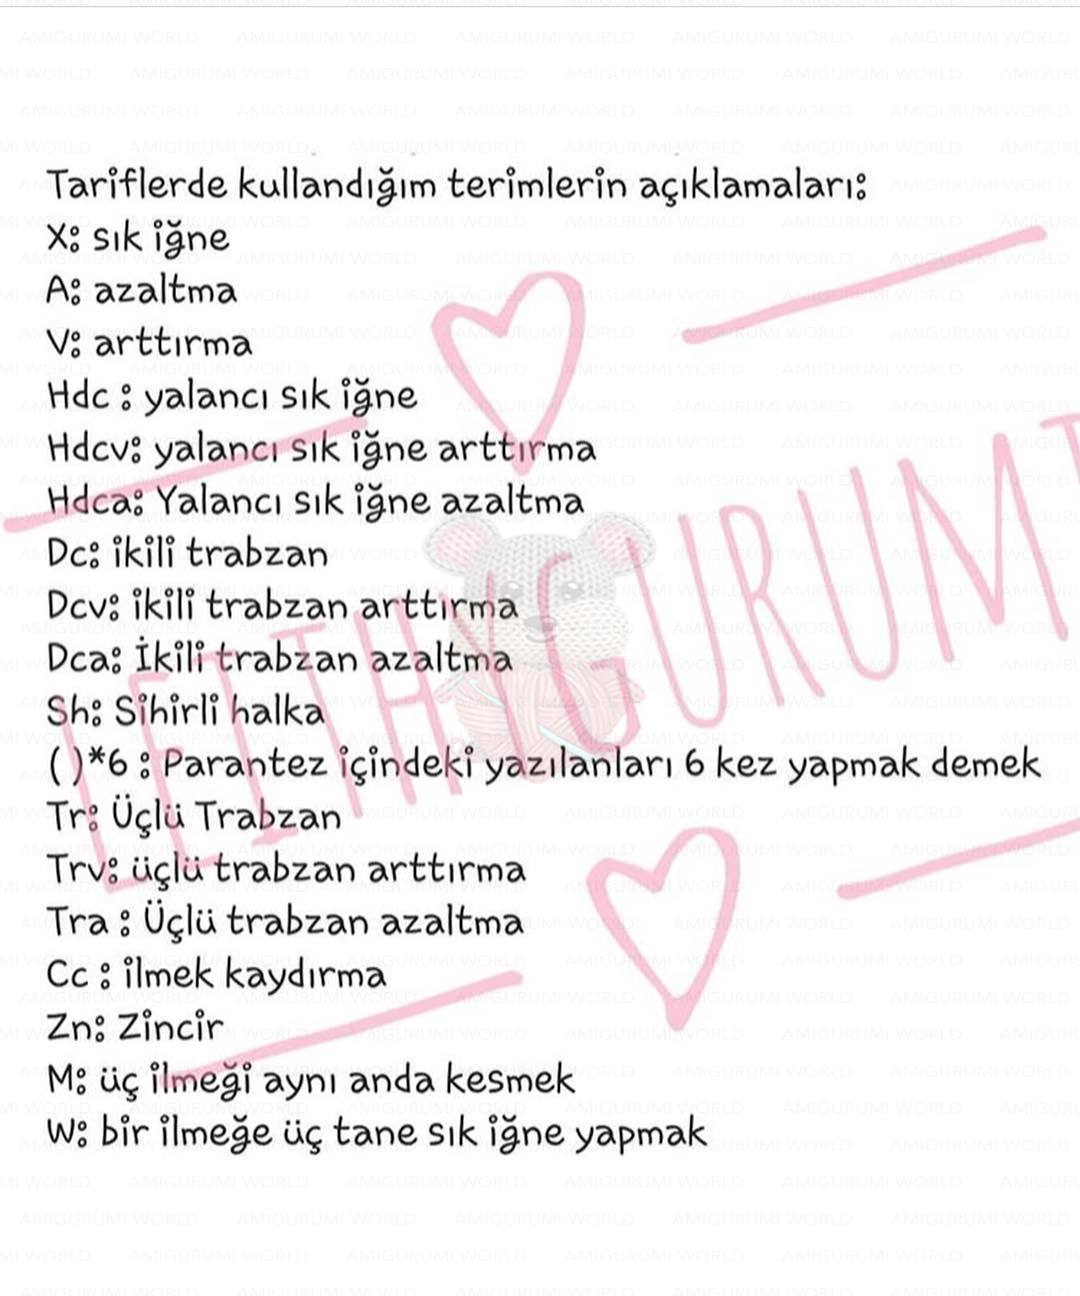 Tariflerde kullandığım terimlerin açıklamaları:
X: sık iğne
A: azaltma
V: arttırma
Hdc : yalancı sık iğne
Hdcv: yalancı sık iğne arttırma
Hdca: Yalancı sık iğne azaltma
Dc: ikili trabzan
Dcv: ikili trabzan arttırma
Dca: İkili trabzan azaltma
Sh: Sihirli halka
( )*6 : Parantez içindeki yazılanları 6 kez yapmak demek
Tr: Üçlü Trabzan
Trv: üçlü trabzan arttırma
Tra : Üçlü trabzan azaltma
Cc : ilmek kaydırma
Zn: Zincir
M: üç ilmeği aynı anda kesmek
W: bir ilmeğe üç tane sık iğne yapmak
AMIGURUMI WORLD